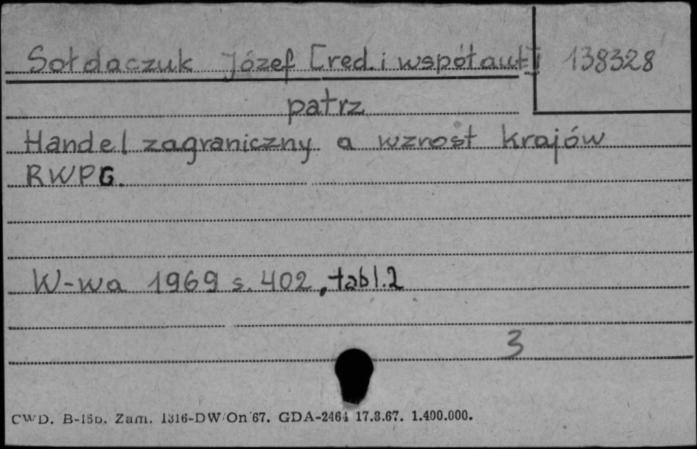 Sołdaczuk Józef [red. i współaut.] 138328
patrz
Handel zagraniczny a wzrost krajów
RWPG.
W-wa 1969 s. 402, tabl. 2
3
CWD. B-15b. Zam. 1316-DW/On/67. GDA-2464 17.8.67. 1.400.000.